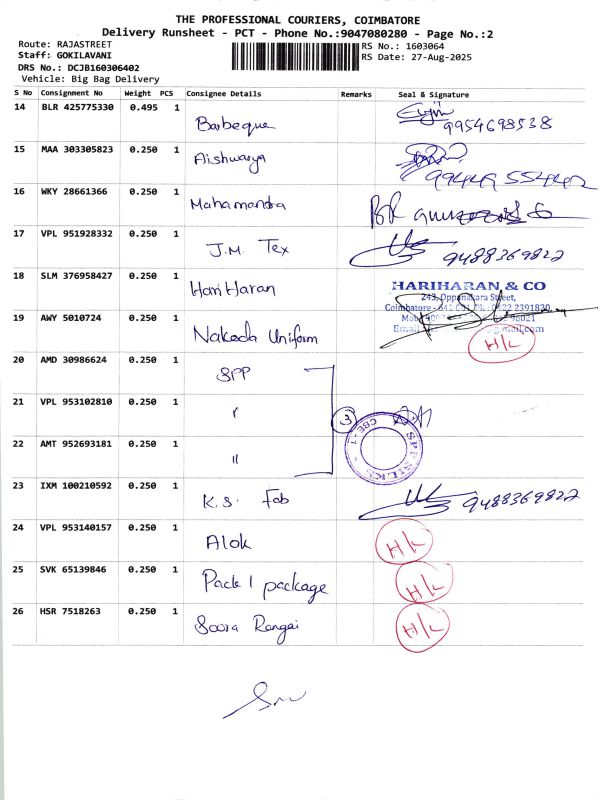 THE PROFESSIONAL COURIERS, COIMBATORE
Delivery Runsheet - PCT - Phone No.:9047080280 - Page No.:2
Route: RAJASTREET
RS No.: 1603064
Staff: GOKILAVANI
RS Date: 27-Aug-2025
DRS No.: DCJB160306402
Vehicle: Big Bag Delivery
S No Consignment No Weight PCS Consignee Details Remarks Seal & Signature
14 BLR 425775330 0.495 1 Barbeque 9954698538
15 MAA 303305823 0.250 1 Aishwarya 99449 55442
16 WKY 28661366 0.250 1 Mahamandra
17 VPL 951928332 0.250 1 J.M. Tex 9488369822
18 SLM 376958427 0.250 1 Hari Haran
HARIHARAN & CO
243, Oppanakara Street,
Coimbatore - 641 001 Ph.: 0422 2391820
19 AWY 5010724 0.250 1 Nakoda Uniform H/L
20 AMD 30986624 0.250 1 SPP
21 VPL 953102810 0.250 1 " 3
SPP SILKS CBE-1
22 AMT 952693181 0.250 1 "
23 IXM 100210592 0.250 1 K.S. Fab 9488369822
24 VPL 953140157 0.250 1 Alok H/L
25 SVK 65139846 0.250 1 Pack 1 package H/L
26 HSR 7518263 0.250 1 Soora Rangai H/L